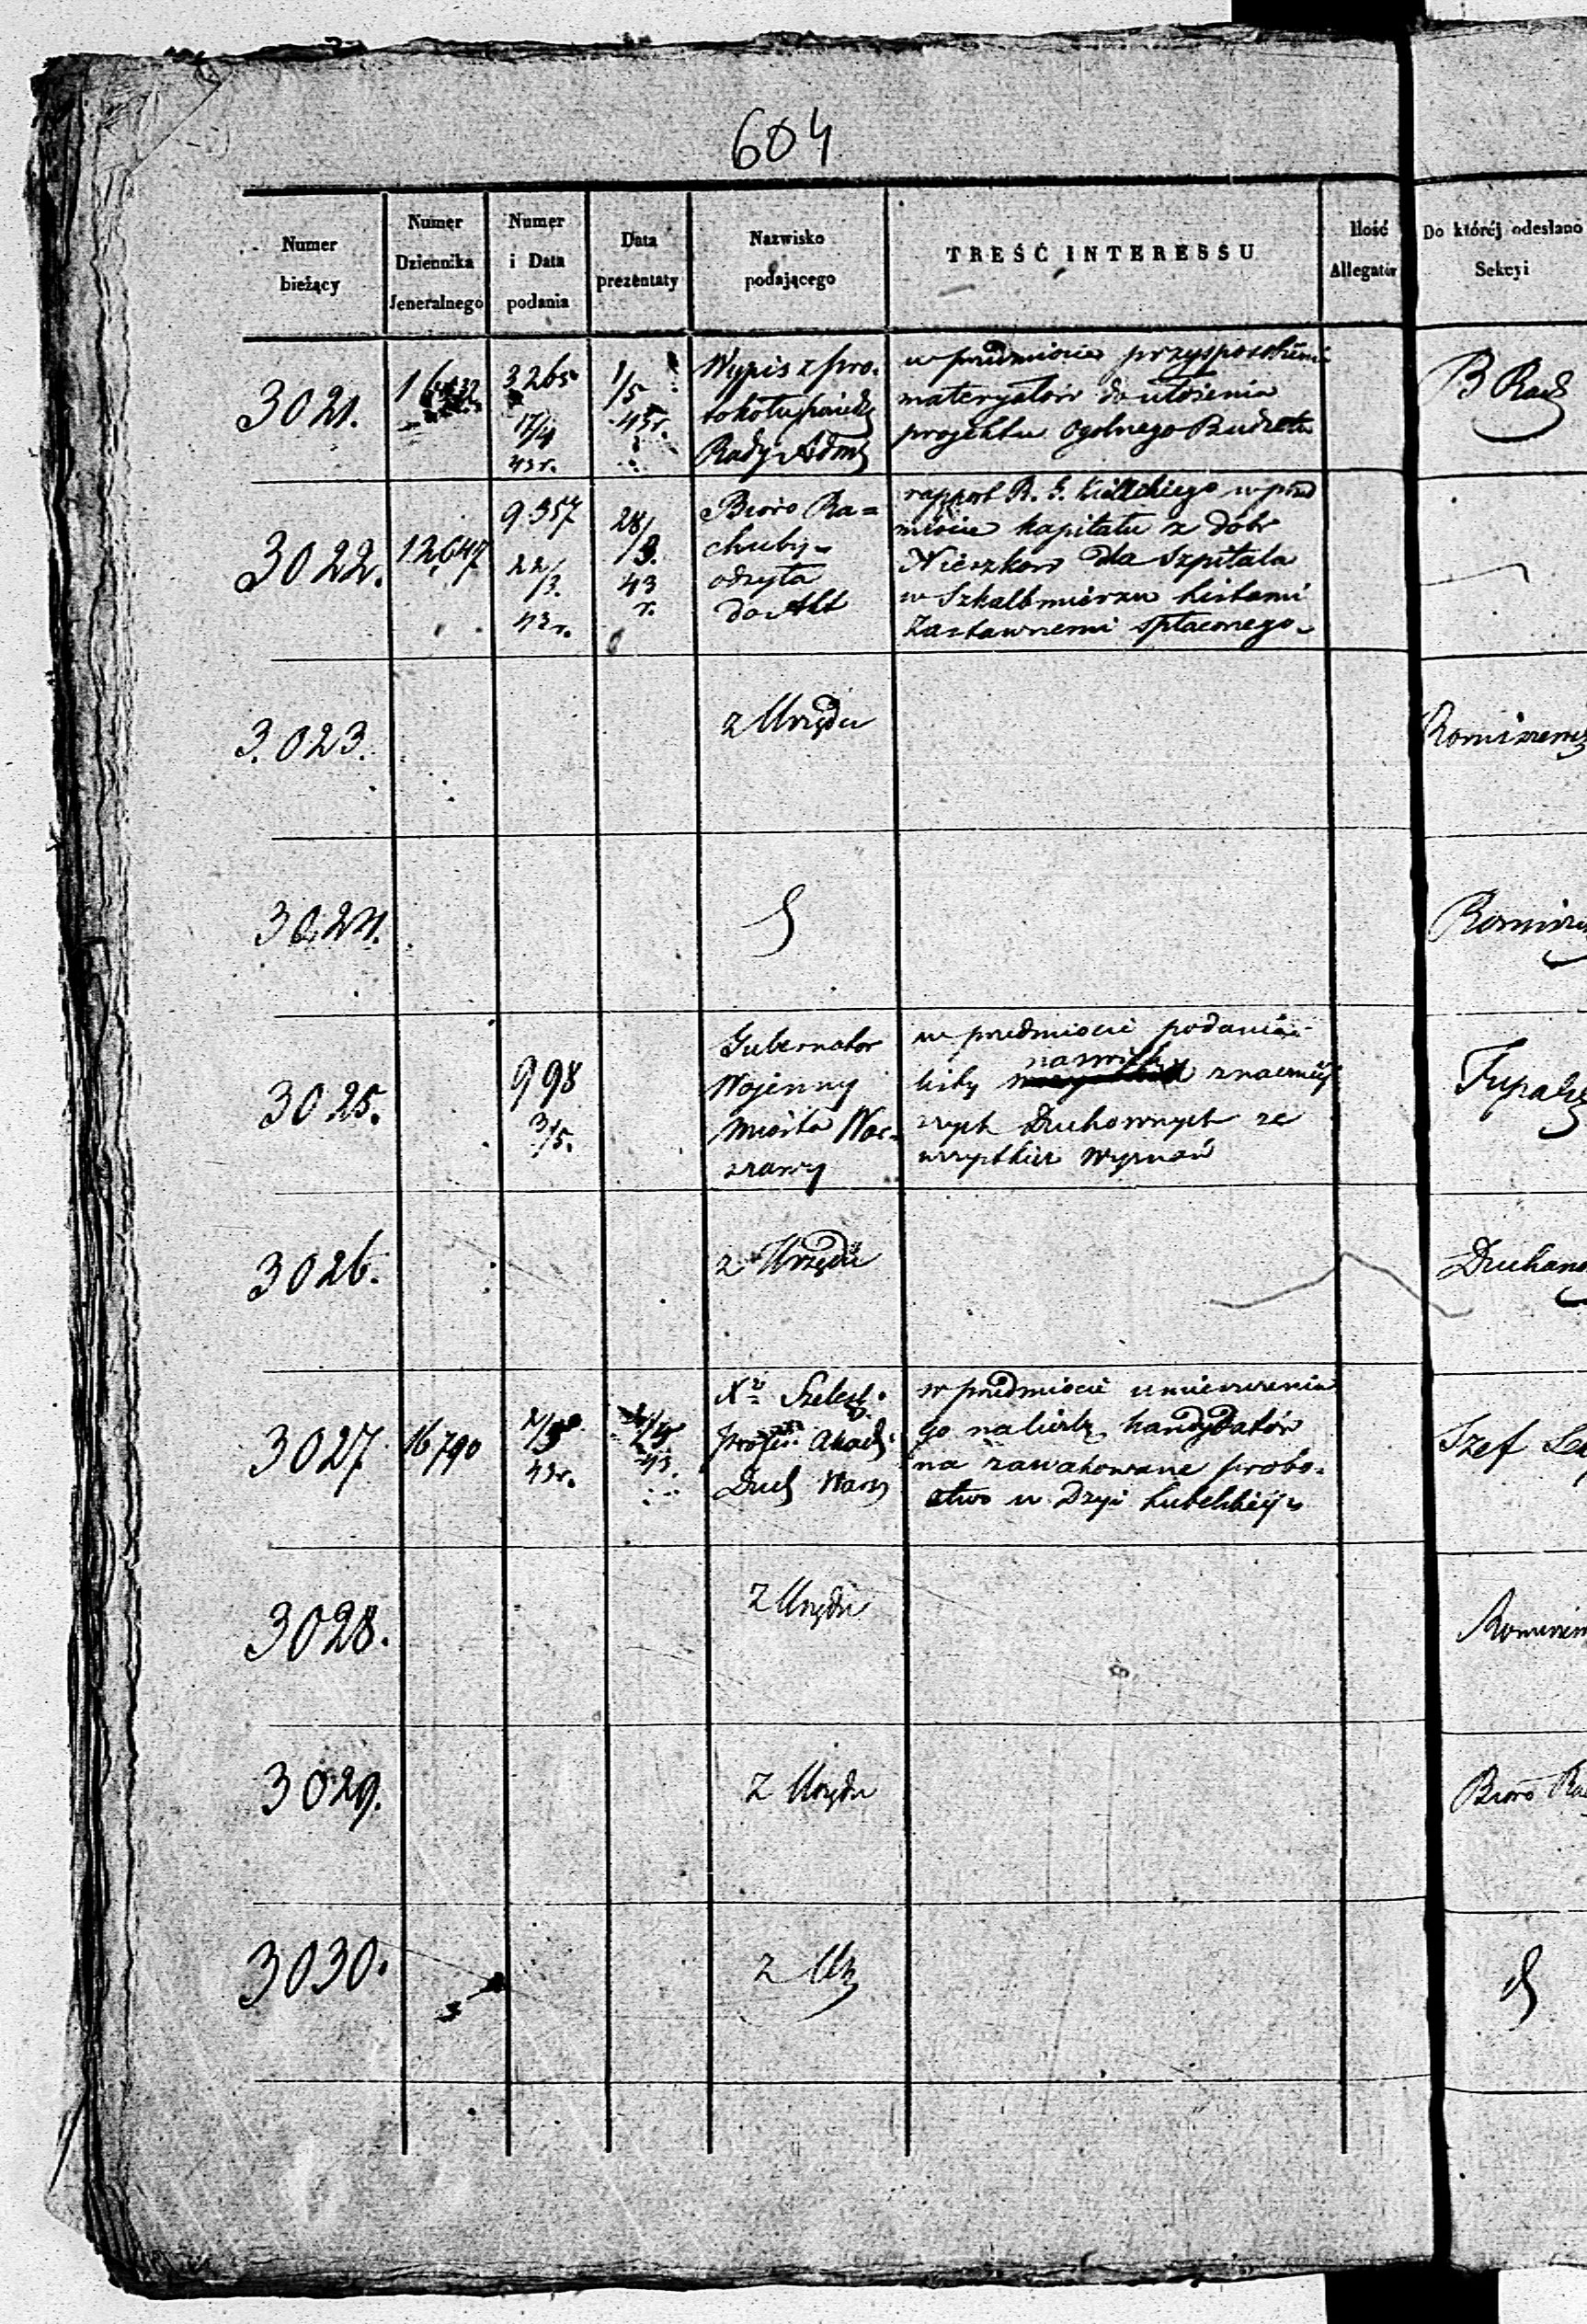 604
Numer bieżący
Numer Dziennika Jeneralnego
Numer i Data podania
Data prezentaty
Nazwisko podającego
TREŚĆ INTERESSU
Ilość Allegatów
Do któréj odesłano Sekcyi
3021.
3265
17/4
43 r.
1/5
43 r.
Wypis z pro-
tokołu
Rady Adm
w przedmiocie przysposobienia
materyałów do ułożenia
projektu ogolnego Budżetu
B Rach
3022.
12,647
9357
22/3.
43 r.
28/3.
43
r.
Bióro Ra=
chuby
odsyła
do Akt
rapport R. G. Kielleckiego w przed
miocie kapitału z dóbr
Nieszkow dla Szpitala
w Szkalbmierzu Listami
Zastawnemi spłaconego
3023.
z Urzędu
3024.
3025.
998
3/5.
Gubernator
Wojenny
Miasta War-
szawy
w przedmiocie podania
listy nazwisk znaczniej
szych Duchownych ze
wszystkich wyznań
3026.
z Urzędu
3027
16790
43 r.
43.
Xz Szelest.
Profes. Akad.
Duch Warsz
w przedmiocie umieszczenia
go na liście kandydatów
na zawakowane probo-
stwo w Dyi Lubelskiéj
Szef
3028.
z Urzędu
3029.
z Urzędu
Bioro
3030.
z Urz